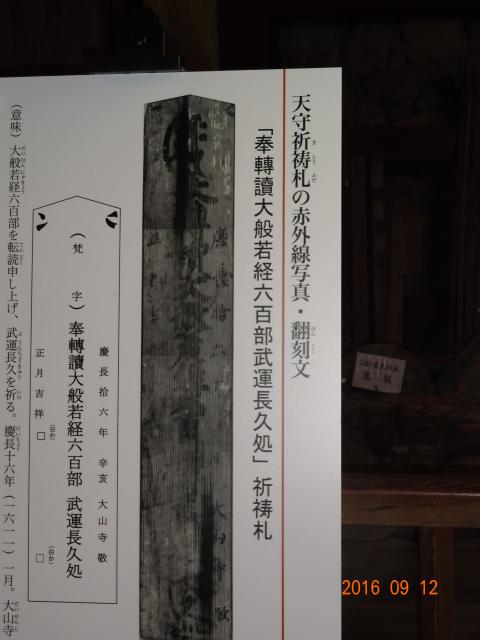 天守祈祷札の赤外線写真・翻刻文
「奉轉讀大般若経六百部武運長久処」祈祷札
慶長拾六年 辛亥 大山寺 敬
(梵 字) 奉轉讀大般若経六百部 武運長久処
正月吉祥□(日か) □(白か)
(意味) 大般若経六百部を転読申し上げ、武運長久を祈る。慶長十六年(一六一一)一月。大山寺
2016 09 12